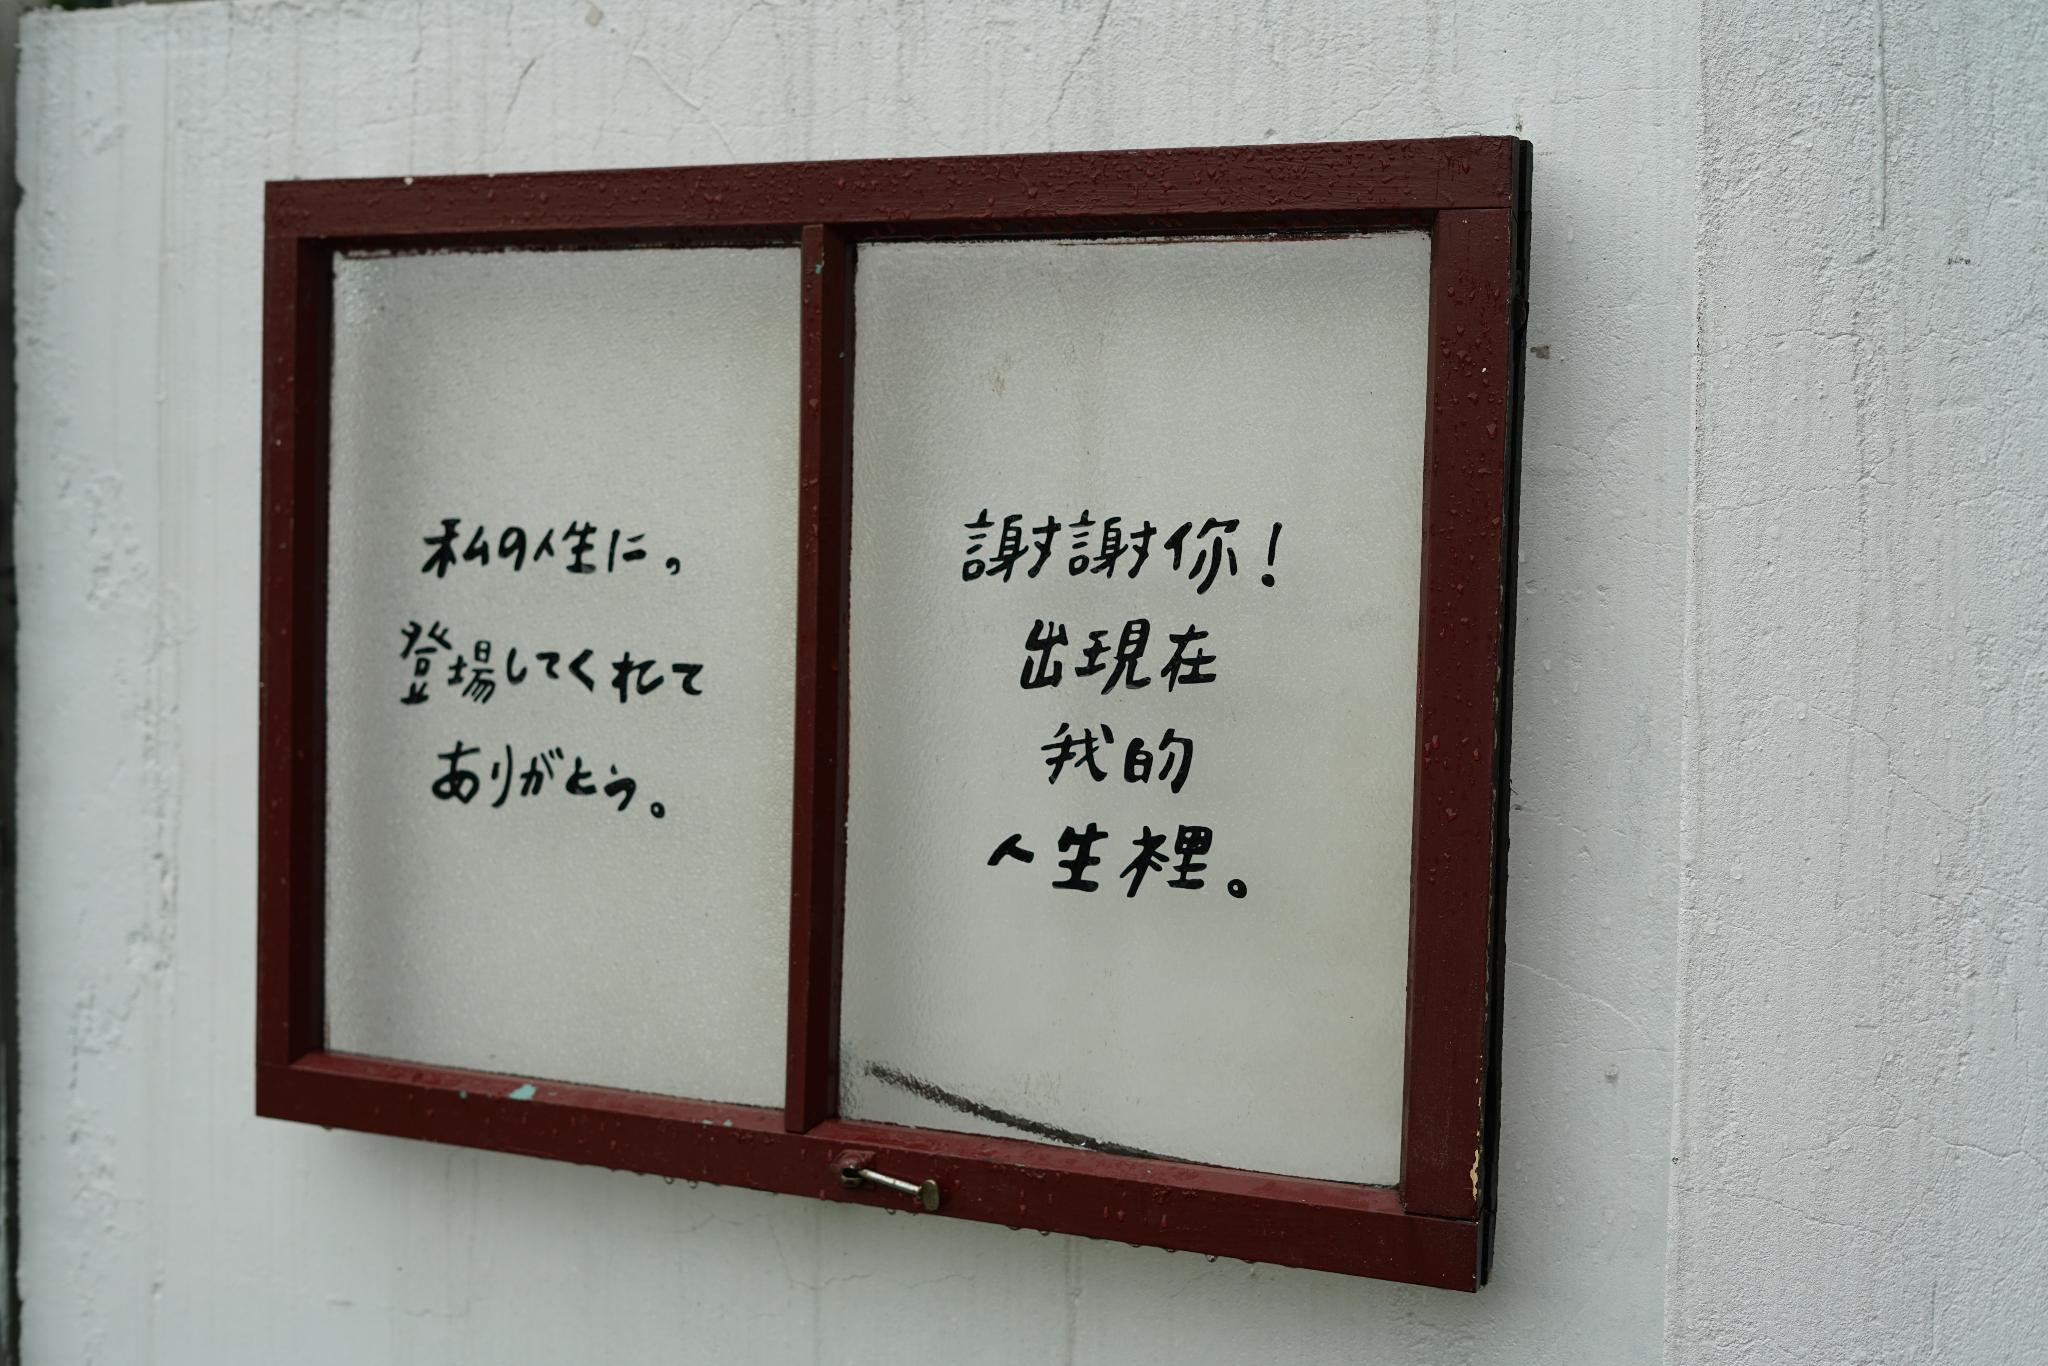 私の人生に,
登場してくれて
ありがとう。
謝謝你!
出現在
我的
人生裡。